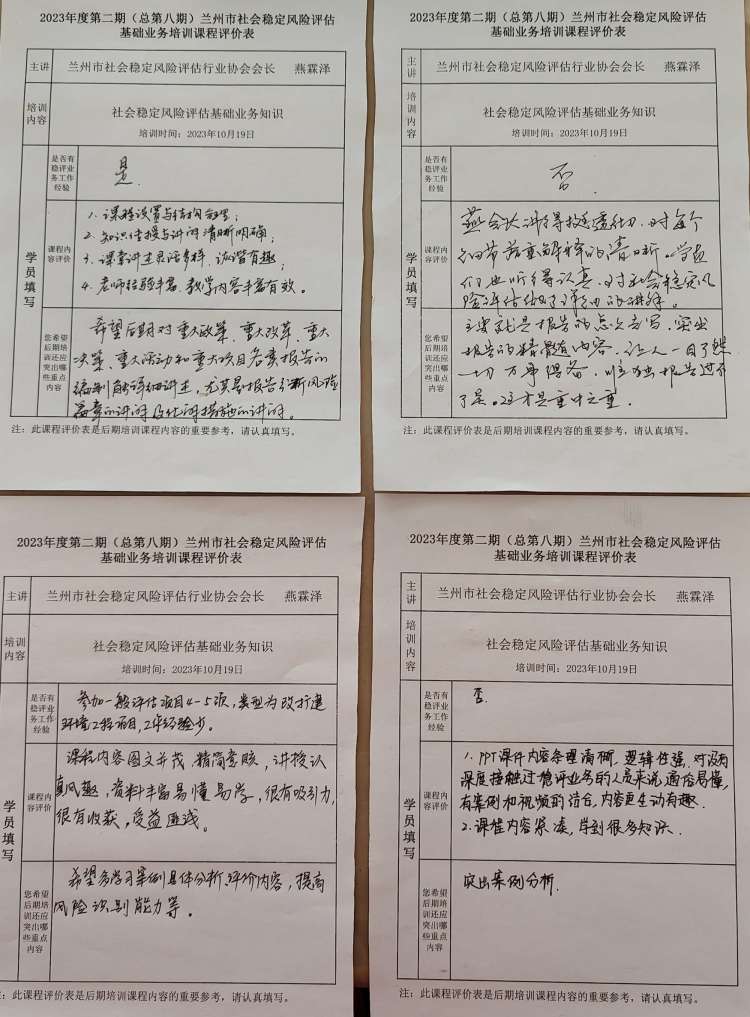 2023年度第二期（总第八期）兰州市社会稳定风险评估
基础业务培训课程评价表
主讲
兰州市社会稳定风险评估行业协会会长 燕霖泽
培训
内容
社会稳定风险评估基础业务知识
培训时间：2023年10月19日
学员填写
是否有
稳评业
务工作
经验
是.
课程内
容评价
1. 课程设置与结构合理；
2. 知识传授与讲解清晰明确；
3. 课堂讲述灵活多样，诙谐有趣；
4. 老师经验丰富、教学内容丰富有效。
您希望
后期培
训还应
突出哪
些重点
内容
希望后期对重大政策、重大改革、重大
决策、重大活动和重大项目各类报告的
编制能详细讲述，尤其是报告分析风险
篇章的讲解及化解措施的讲解。
注：此课程评价表是后期培训课程内容的重要参考，请认真填写。
2023年度第二期（总第八期）兰州市社会稳定风险评估
基础业务培训课程评价表
主讲
兰州市社会稳定风险评估行业协会会长 燕霖泽
培训内容
社会稳定风险评估基础业务知识
培训时间：2023年10月19日
学员填写
是否有
稳评业
务工作
经验
否.
课程内
容评价
燕会长讲得挺透彻，对每个
细节着重解释的清晰。学员
们也听得认真，对社会稳定风
险评估做了详细的讲解。
您希望
后期培
训还应
突出哪
些重点
内容
主要就是报告的怎么去写，突出
报告的精髓内容，让人一目了然
一切万事俱备，唯独报告过不
了是。这才是重中之重.
注：此课程评价表是后期培训课程内容的重要参考，请认真填写。
2023年度第二期（总第八期）兰州市社会稳定风险评估
基础业务培训课程评价表
主讲
兰州市社会稳定风险评估行业协会会长 燕霖泽
培训
内容
社会稳定风险评估基础业务知识
培训时间：2023年10月19日
学员填写
是否有
稳评业
务工作
经验
参加一般评估项目4-5次，类型为改扩建
环境工程项目，工作经验少。
课程内
容评价
课程内容图文并茂、精简意赅，讲授认
真风趣，资料丰富易懂易学，很有吸引力，
很有收获，受益匪浅。
您希望
后期培
训还应
突出哪
些重点
内容
希望多学习案例具体分析、评价内容，提高
风险识别能力等。
：此课程评价表是后期培训课程内容的重要参考，请认真填写。
2023年度第二期（总第八期）兰州市社会稳定风险评估
基础业务培训课程评价表
主讲
兰州市社会稳定风险评估行业协会会长 燕霖泽
培训内容
社会稳定风险评估基础业务知识
培训时间：2023年10月19日
学员填写
是否有
稳评业
务工作
经验
否.
课程内
容评价
1. PPT课件内容条理清晰，逻辑性强，对没有
深度接触过稳评业务的人员来说通俗易懂，
有案例和视频的结合，内容更生动有趣.
2. 课程内容紧凑，学到很多知识.
您希望
后期培
训还应
突出哪
些重点
内容
突出案例分析.
注：此课程评价表是后期培训课程内容的重要参考，请认真填写。